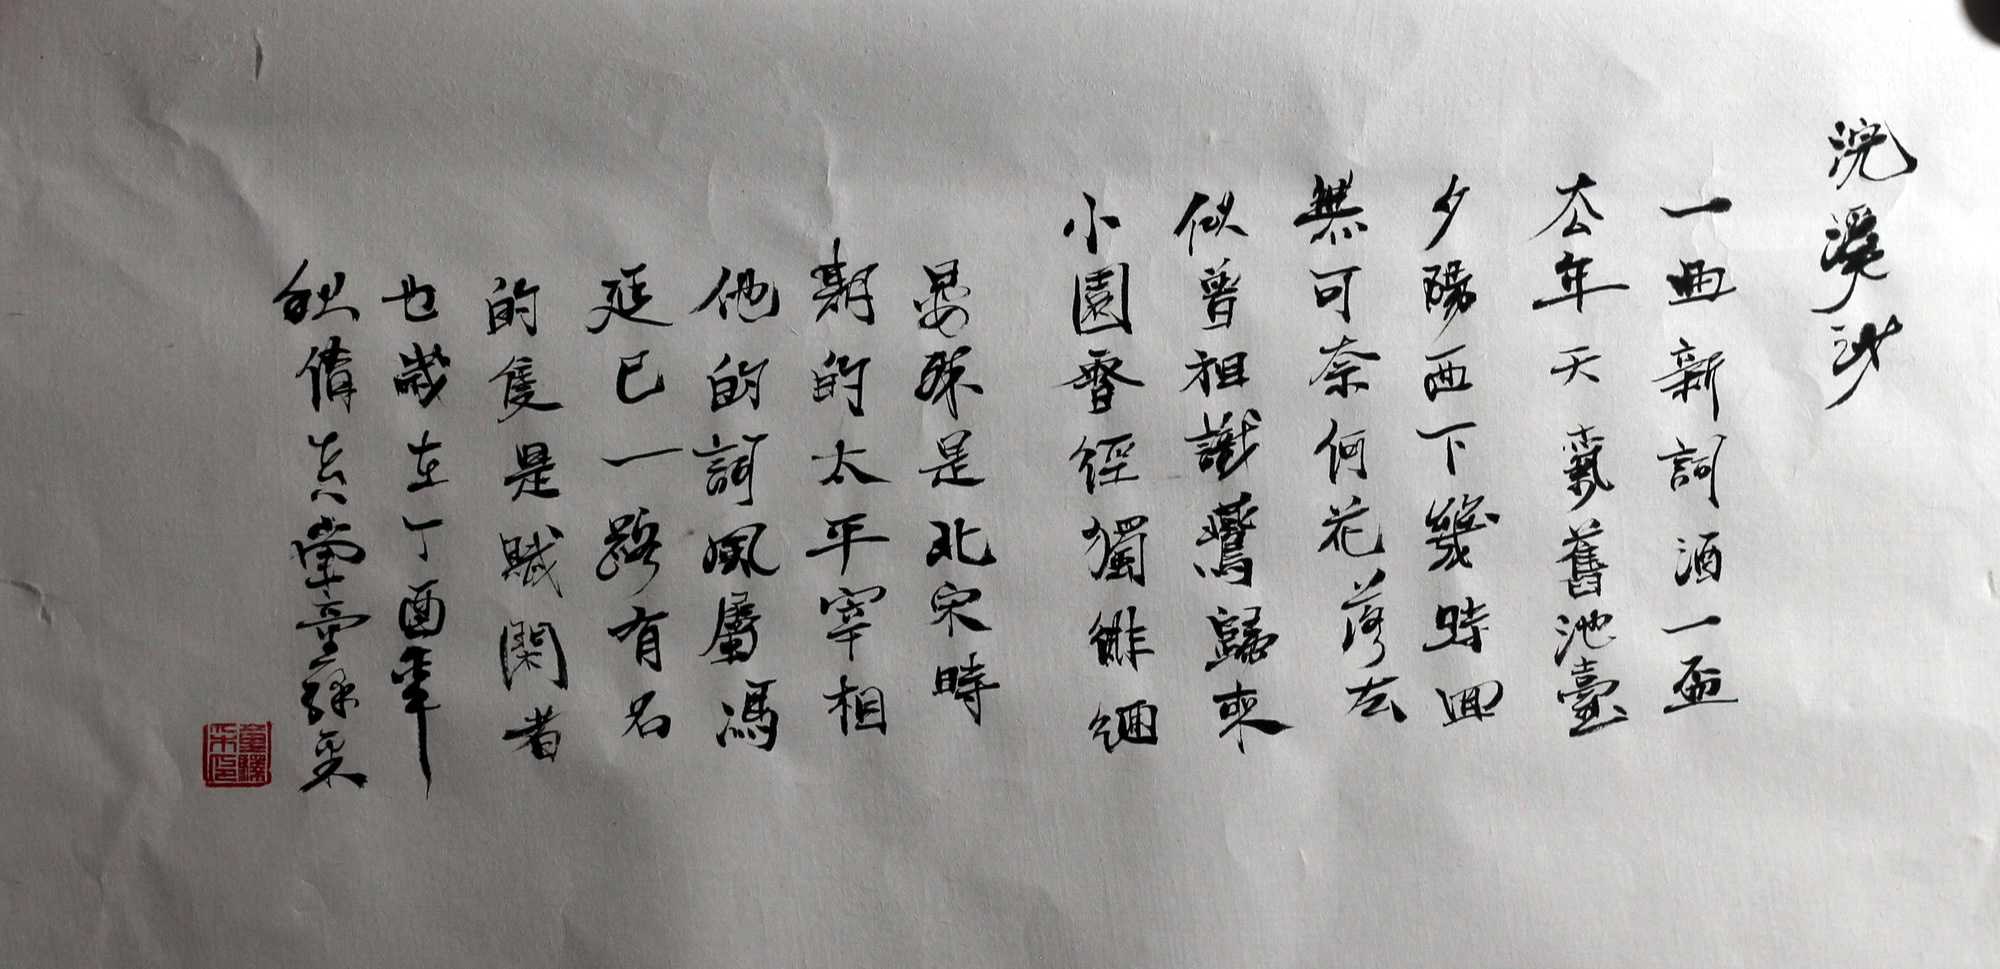 浣溪沙
一曲新詞酒一盃
去年天氣舊池臺
夕陽西下幾時回
無可奈何花落去
似曾相識鷰歸來
小園香徑獨徘徊
晏殊是北宋時
期的太平宰相
他的詞風屬馮
延巳一路有名
的隻是賦閑者
也歲在丁酉年
秋倩